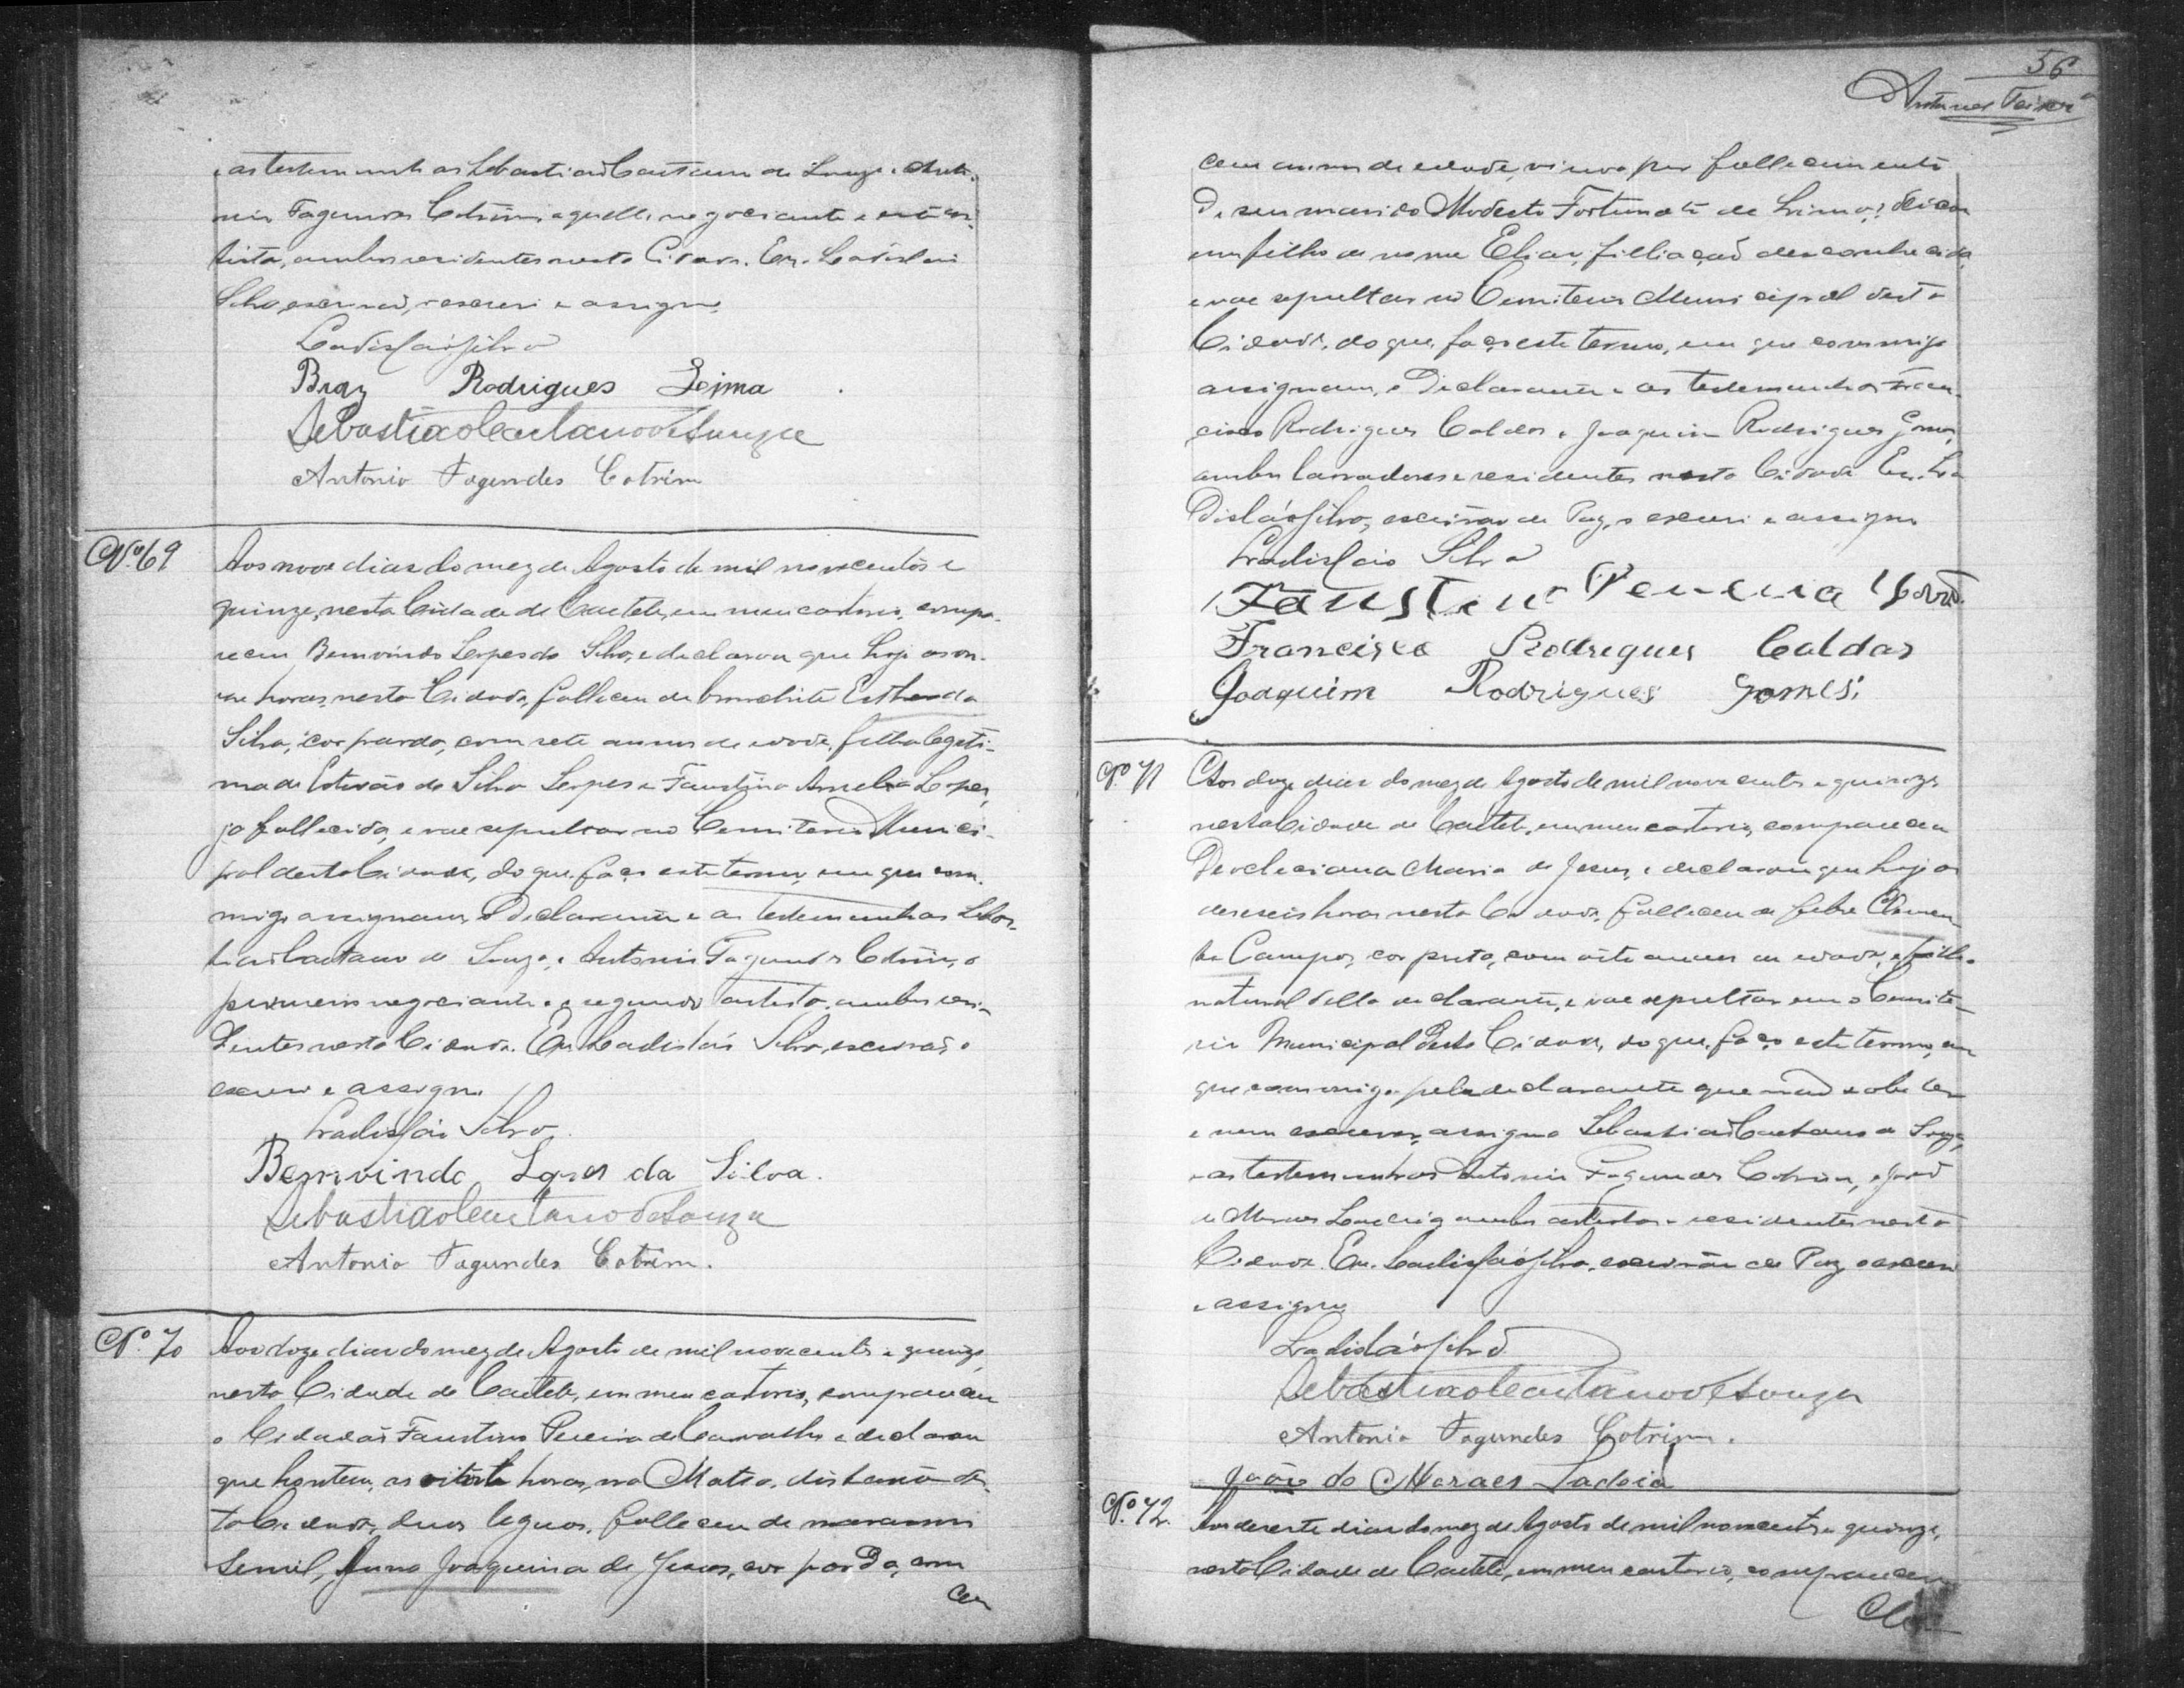 e as testemunhas Sebastião Caetano de Souza e Anto-
nio Fagundes Cotrim, aquelle negociante e este ar-
tista, ambos residentes nesta Cidade. Eu, Ladislau
Silva, escrivão, o escrevi e assigno.
Ladisláo Silva
Braz Rodrigues Leima
Sebastião Caetano de Souza
Antonio Fagundes Cotrim
Nº 69
Aos nove dias do mez de Agosto de mil novecentos e
quinze, nesta Cidade de Caeteté, em meu cartorio, compa-
receu Bemvindo Lopes da Silva, e declarou que hoje as on-
ze horas, nesta Cidade, falleceu de bronchite Esther da
Silva, côr parda, com sete annos de edade, filha legiti-
ma de Estevão da Silva Lopes e Faustina Amelia Lopes,
já fallecida, e vae sepultar no Cemiterio Munici-
pal desta Cidade, do que faço este termo, em que com-
migo assignam, o Declarante e as testemunhas Sebas-
tião Caetano de Souza, e Antonio Fagundes Cotrim, o
primeiro negociante e o segundo artista, ambos resi-
dentes nesta Cidade. Eu Ladisláo Silva, escrivão o
escrevi e assigno.
Ladisláo Silva
Bemvindo Lopes da Silva.
Sebastião Caetano de Souza
Antonio Fagundes Cotrim.
Nº 70
Aos doze dias do mez de Agosto de mil novecentos e quinze,
nesta Cidade de Caeteté, em meu cartorio, compareceu
o Cidadão Faustino Pereira de Carvalho e declarou
que hontem, as horas, no Matso, distante des-
ta Cidade, duas leguas, falleceu de marasmo
senil, Anna Joaquina de Jesus, cor parda, com
cem
56
Antunes Teixeira
cem annos de edade, viuva por fallecimento
de seu marido Modesto Fortunato de Lima, deixou
um filho de nome Elias, filliação desconhecida,
e vae sepultar no Cemiterio Municipal desta
Cidade, do que, faço este termo, em que commigo
assignam, o Declarante e as testemunhas Fran-
cisco Rodrigues Caldas e Joaquim Rodrigues Gomes,
ambos lavradores e residentes nesta Cidade. Eu, La-
disláo Silva, escrivão de Paz, o escrevi e assigno
Ladisláo Silva
Faustino Pereira
Francisco Rodrigues Caldas
Joaquim Rodrigues Gomes
Nº 71
Aos doze dias do mez de Agosto de mil novecentos e quinze,
nesta Cidade de Caeteté, em meu cartorio, compareceu
Deocleciana Maria de Jesus, e declarou que hoje as
deseseis horas nesta Cidade, falleceu de febre Clemen-
te Campos, cor preta, com oito annos de edade, filho
natural della declarante, e vae sepultar em o Cemite-
rio Municipal desta Cidade, do que, faço este termo, em
que commigo pela declarante que não sabe ler
e nem escrever, assigna Sebastião Caetano de Souza,
e as testemunhas Antonio Fagundes Cotrim, e João
de Moraes ambos artistas e residentes nesta
Cidade. Eu. Ladisláo Silva, escrivão de Paz o escrevi
e assigno
Ladisláo Silva
Sebastião Caetano de Souza
Antonio Fagundes Cotrim.
João de Moraes
Nº 72
Aos desesete dias do mez de Agosto de mil novecentos e quinze,
nesta Cidade de Caeteté, em meu cartorio, compareceu